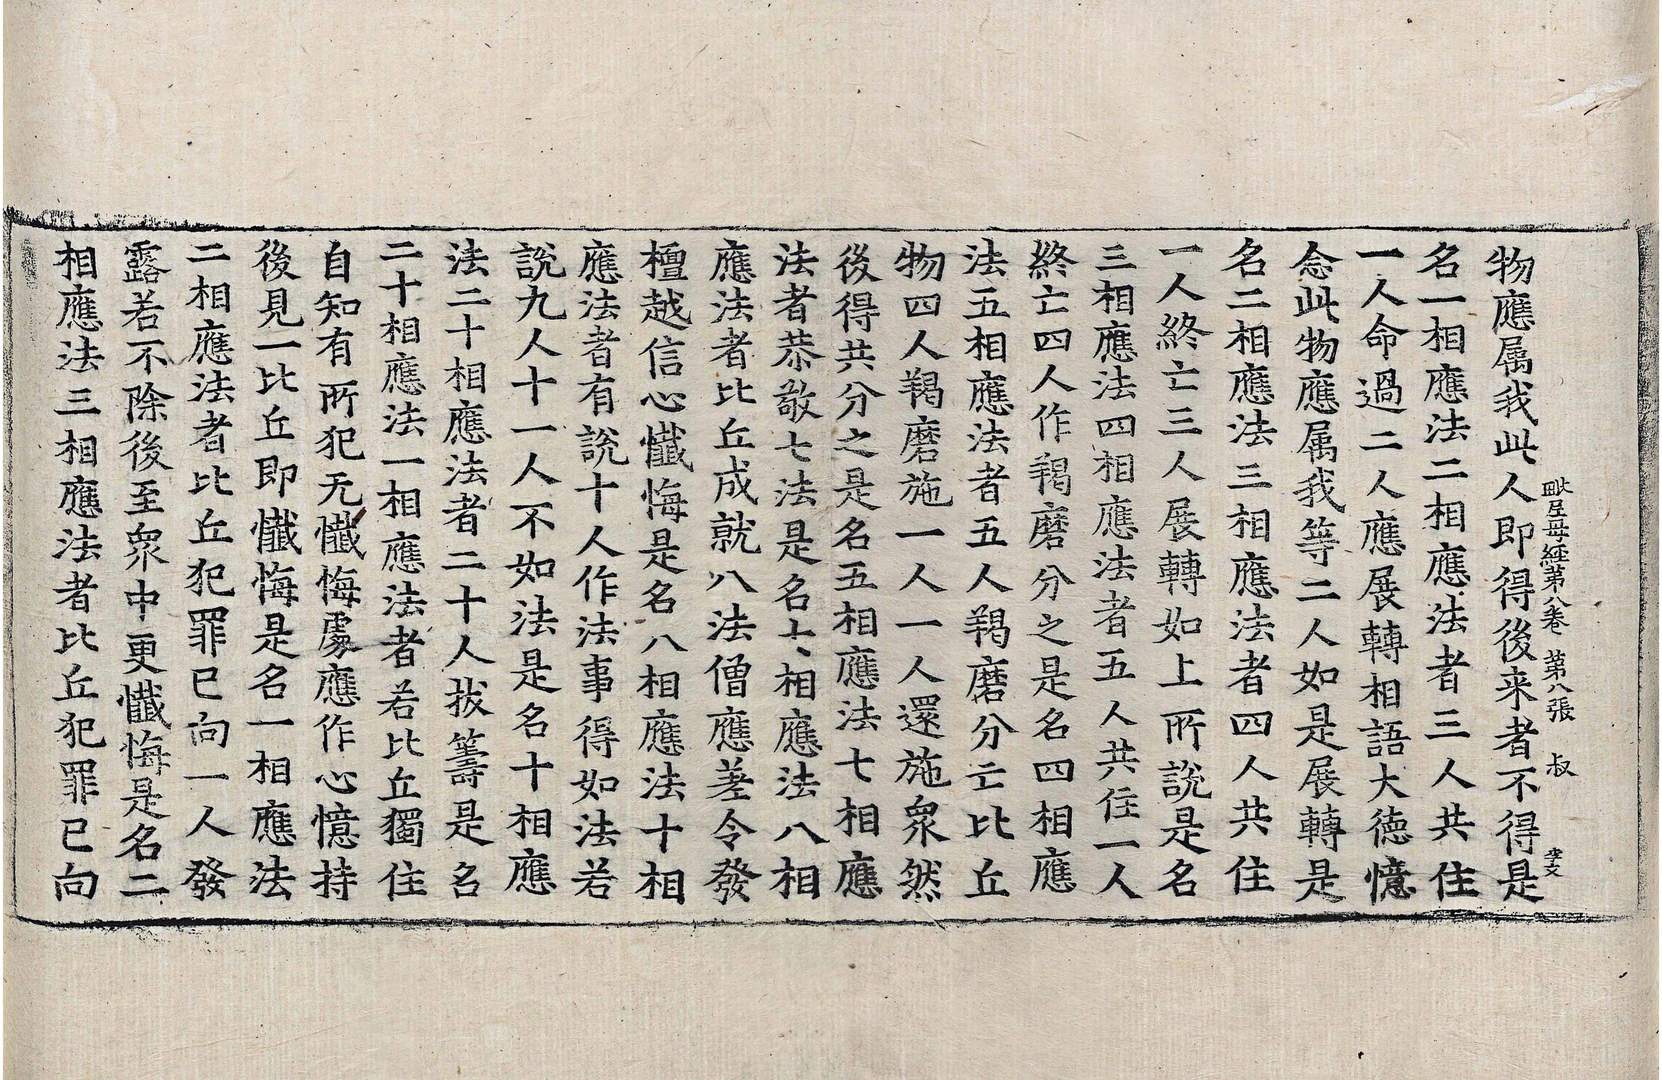 毗尼母經第八卷 第八張 叔
物應属我此人即得後来者不得是
名一相應法二相應法者三人共住
一人命過二人應展轉相語大徳憶
念此物應属我等二人如是展轉是
名二相應法三相應法者四人共住
一人終亡三人展轉如上所說是名
三相應法四相應法者五人共住一人
終亡四人作羯磨分之是名四相應
法五相應法者五人羯磨分亡比丘
物四人羯磨施一人一人還施衆然
後得共分之是名五相應法七相應
法者恭敬七法是名七相應法八相
應法者比丘成就八法僧應差令發
檀越信心懺悔是名八相應法十相
應法者有說十人作法事得如法若
說九人十一人不如法是名十相應
法二十相應法者二十人拔籌是名
二十相應法一相應法者若比丘獨住
自知有所犯无懺悔處應作心憶持
後見一比丘即懺悔是名一相應法
二相應法者比丘犯罪已向一人發
露若不除後至衆中更懺悔是名二
相應法三相應法者比丘犯罪已向